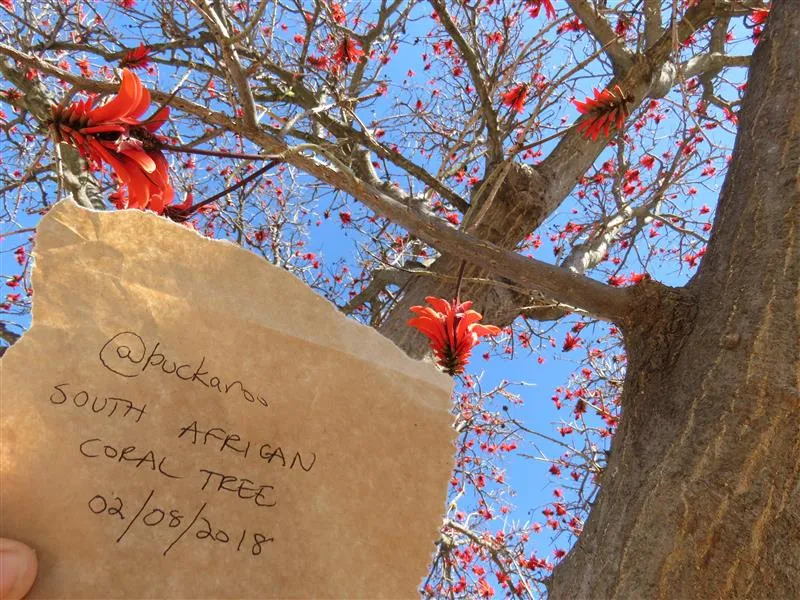 @buckaroo
SOUTH AFRICAN
CORAL TREE
02/08/2018